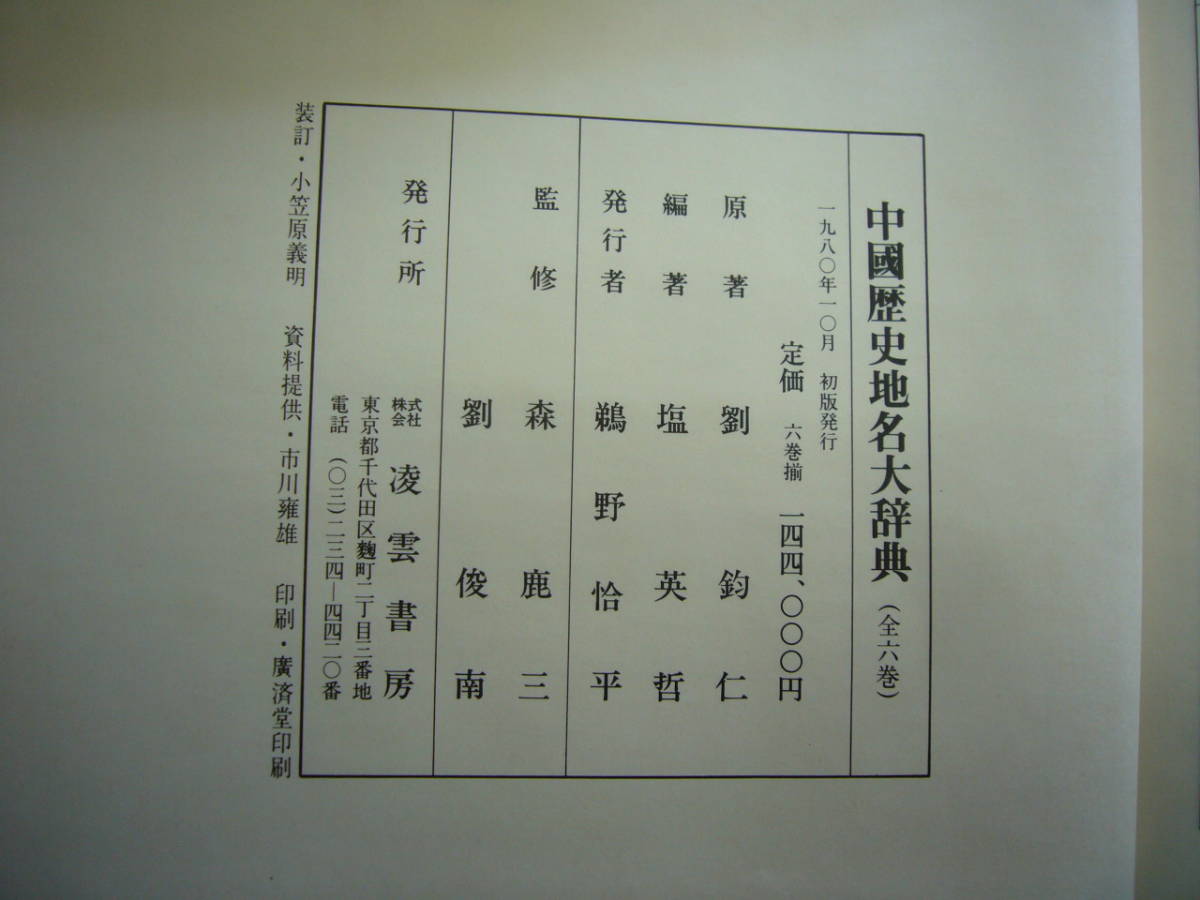 中國歴史地名大辞典（全六巻）
一九八〇年一〇月　初版発行
定価　六巻揃　一四四、〇〇〇円
原著　劉鈞仁
編著　塩英哲
発行者　鵜野恰平
監修　森鹿三
劉俊南
発行所　株式会社　凌雲書房
東京都千代田区麴町二丁目三番地
電話（〇三）二三四―四四二〇番
装訂・小笠原義明　資料提供・市川雍雄　印刷・廣済堂印刷